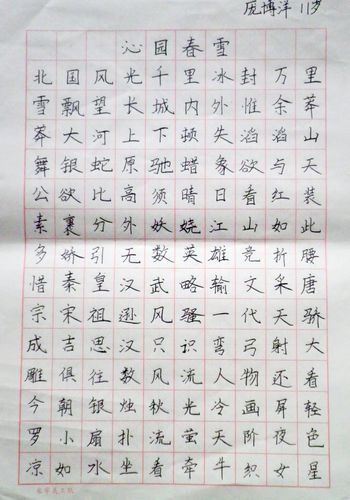 庞博洋 11岁
沁园春雪
北国风光千里冰封万里
雪飘望长城内外惟余莽
莽大河上下顿失滔滔山
舞银蛇原驰蜡象欲与天
公欲比高须晴日看红装
素裹分外妖娆江山如此
多娇引无数英雄竞折腰
惜秦皇汉武略输文采唐
宗宋祖逊风骚一代天骄
成吉思汉只识弯弓射大
雕俱往数风流人物还看
今朝银烛秋光冷画屏轻
罗小扇扑流萤天阶夜色
凉如水坐看牵牛织女星